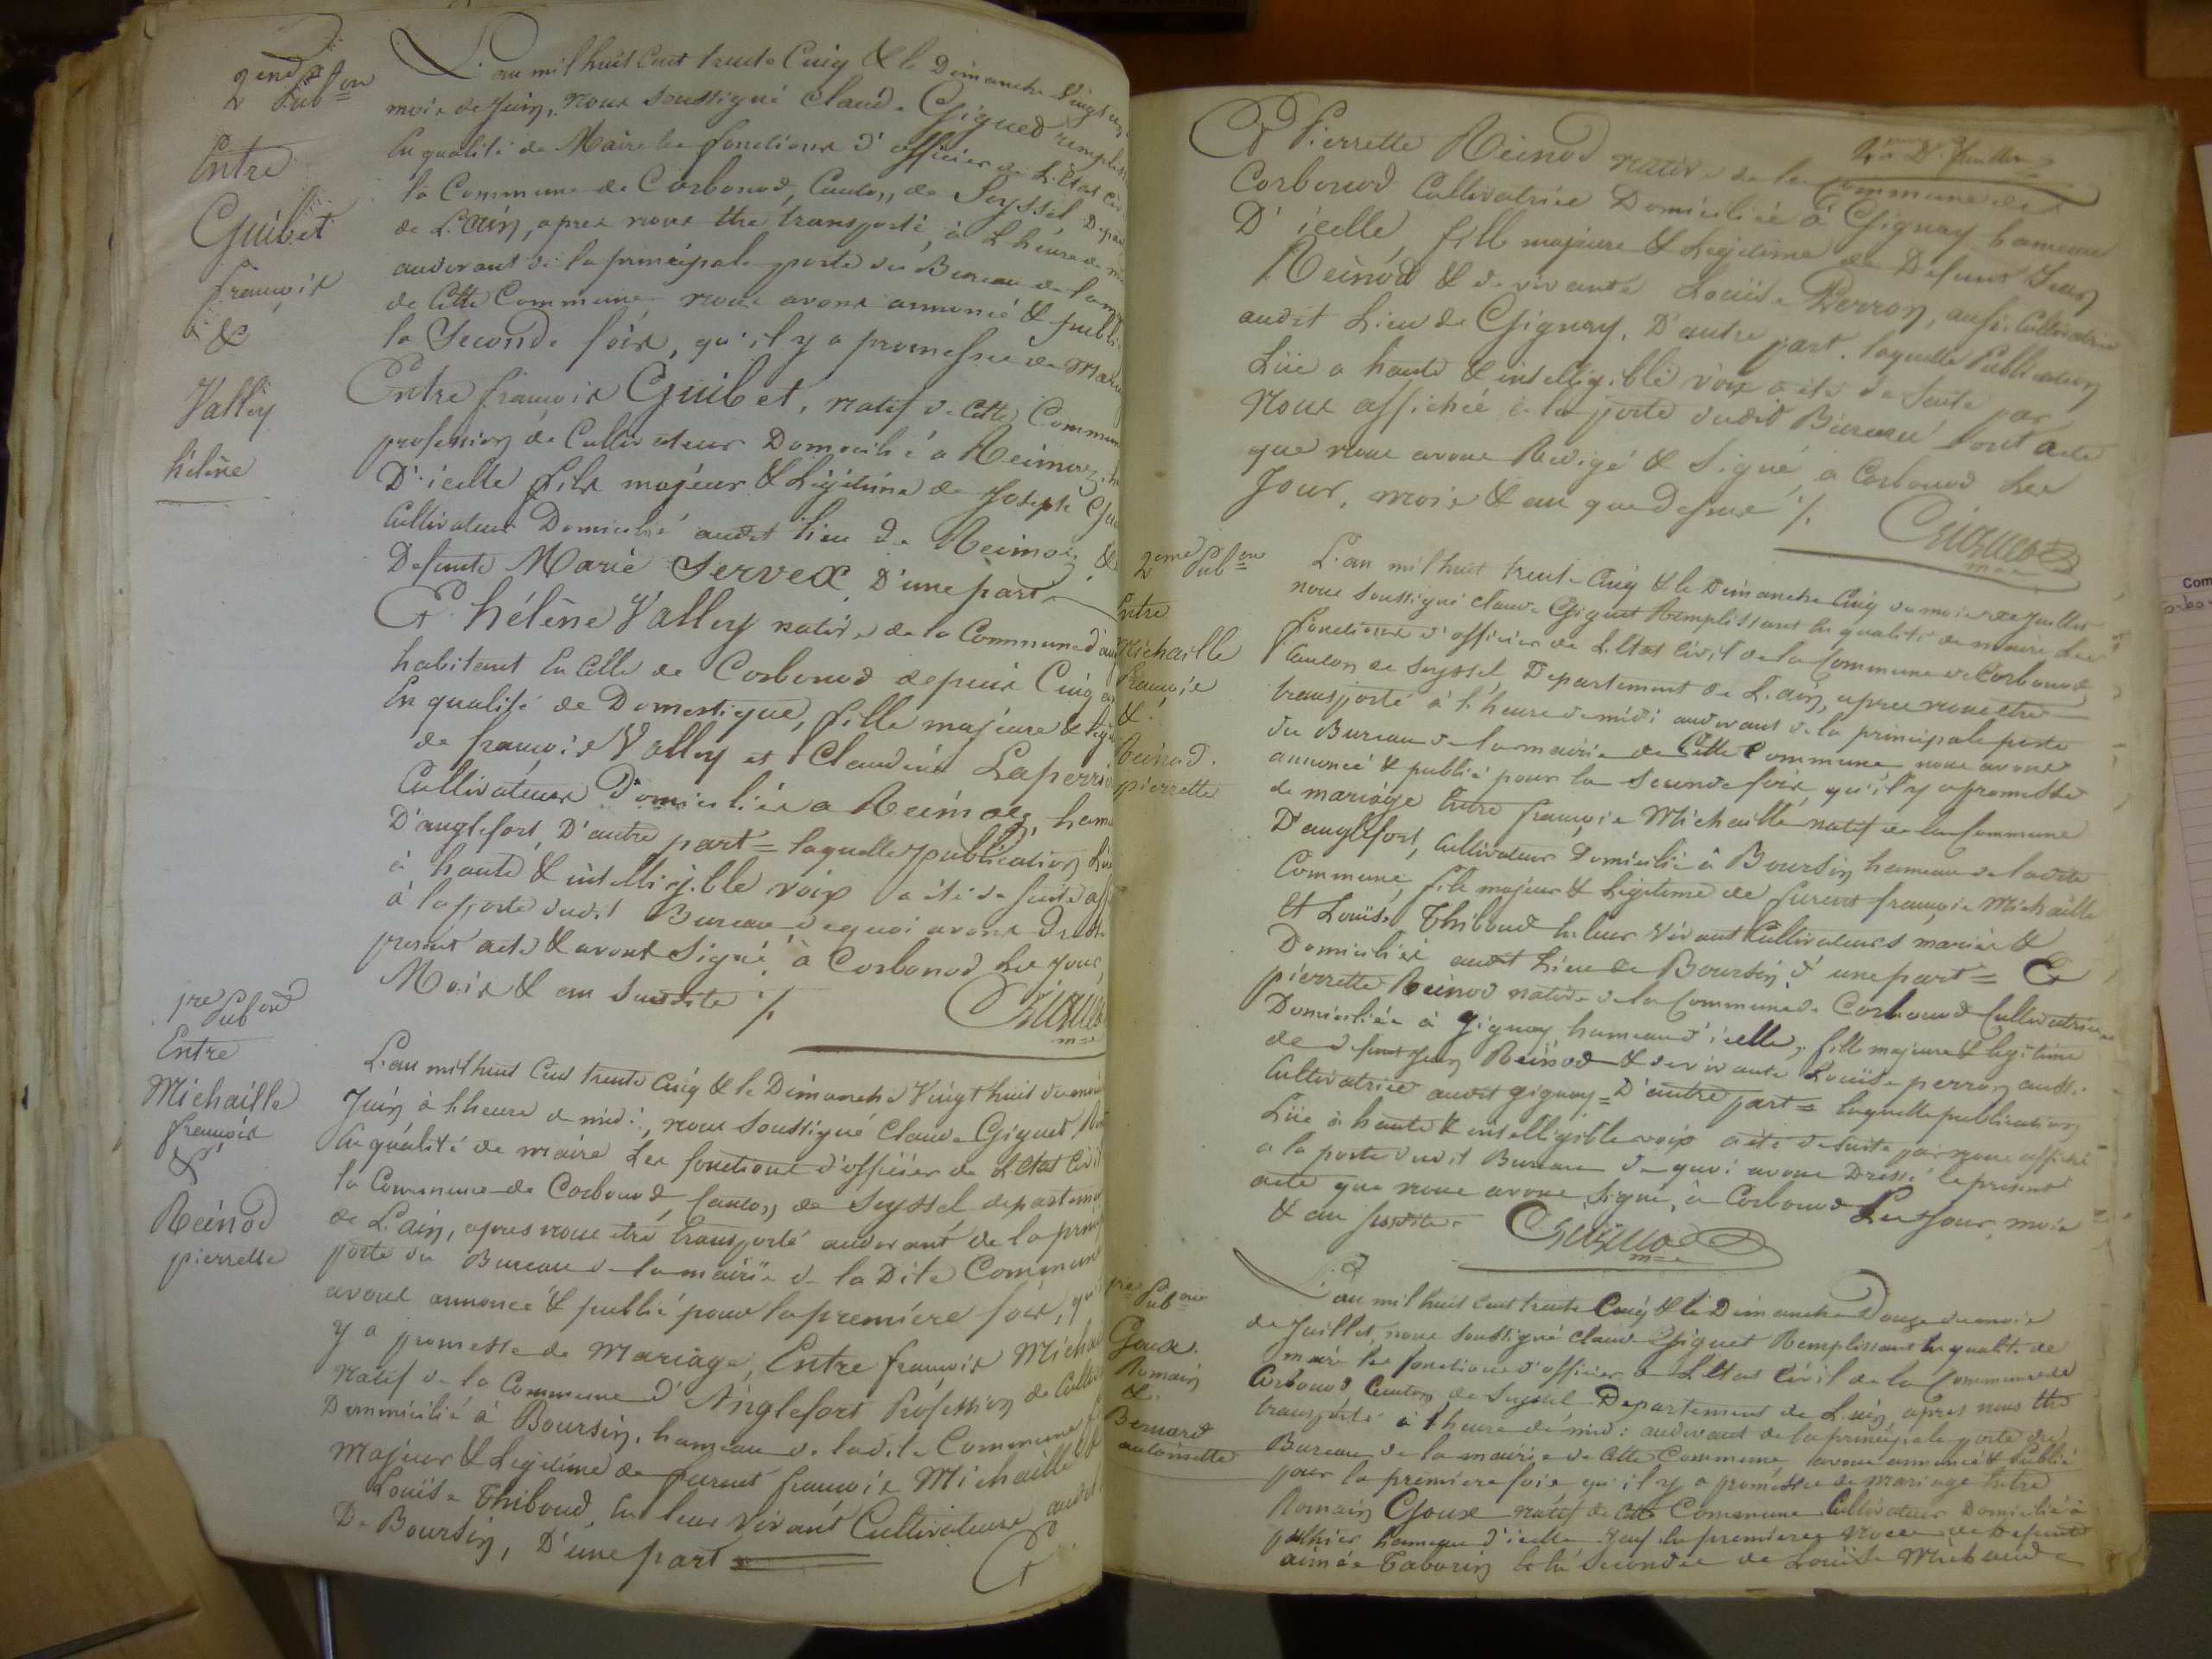 2end Pub=on
Entre
Guibet
françois
&
Vallin
hélène
L'an mil huit Cent trente Cinq & le Dimanche Vingt un
mois de Juin, nous soussigné Claude Giguet rempliss
En qualité de Maire les fonctions d'officier de L'Etat Civ
la Commune de Corbonod, Canton de Seyssel Depar
de L'ain, apres nous être transporté, à L'heure de mi
audevant de la principale porte du Bureau de la mai
de Cette Commune nous avons annoncé & publi
la Seconde fois, qu'il y a promesse de Mari
Entre françois Guibet, natif de Cette Commun
profession de Cultivateur Domicilié à
D'icelle fils majeur & Légitime de Joseph Gui
Cultivateur Domicilié audit lieu de
Defunte Marie Servex, D'une part
Et hélène Vallin native de la Commune d'an
habitant En Celle de Corbonod depuis Cinq an
En qualité de Domestique, fille majeure & légi
de françois Vallin et Claudine Laperri
Cultivateurs Domiciliés a ham
D'anglefort, D'autre part = laquelle publication Lüe
à haute & intelligible voix a été de suite aff
à la porte dudit Bureau de quoi avons Dressé
present acte & avons Signé à Corbonod Les jour
Mois & an susdits ./.
Giguet
m=e
1re Pub=on
Entre
Michaille
françois
&
Reinod
pierrette
L'an mil huit Cent trente Cinq & le Dimanche Vingt huit du mois
Juin à L'heure de midi, nous soussigné Claude Giguet
En qualité de maire Les fonctions d'officier de L'Etat Civil
la Commune de Corbonod, Canton de Seyssel departemen
de L'ain, apres nous être transporté audevant de la prin
porte du Bureau de la mairie de la Dite Commune
avons annoncé & publié pour la premiére fois, qu'il
y a promesse de Mariage, Entre françois Micha
natif de la Commune d'Anglefort Profession de Cultiv
Dommicilié à Boursin, hameau de ladite Commune
majeur & Légitime de furent françois Michaille &
Louise Thiboud, En leur vivant Cultivateurs audit
De Boursin, D'une part
Et
2re D. Juillet
Et Pierrette Reinod native de la Commune de
Corbonod Cultivatrice Domiciliée à Gignay hameau
D'icelle, fille majeure & Légitime de Defunt Jean
Reinod & de vivante Louise Perron, aussi Cultivatrice
audit Lieu de Gignay, D'autre part, laquelle Publication
Lüe a haute & intelligible voix a été de suite par
Nous affichée à la porte dudit Bureau Dont acte
que nous avons Redigé & Signé, à Corbonod Les
Jour, mois & an que Dessus ./.
Giguet
m=e
2eme Pub=on
Entre
Michaille
François
&
Reinod
pierrette
L'an mil huit trente Cinq & le Dimanche Cinq du mois de Juillet
nous soussigné Claude Giguet Remplissant En qualité de maire Les
fonctions d'officier de L'Etat Civil de la Commune de Corbonod,
Canton de Seyssel, Departement de L'ain, apres nous être
transporté à L'heure de midi audevant de la principale porte
du Bureau de la mairie de Cette Commune nous avons
annoncé & publié pour la seconde fois, qu'il y a promesse
de mariage Entre françois Michaille natif de la Commune
D'anglefort, Cultivateur Domicilié à Boursin hameau de ladite
Commune, fils majeur & Légitime de furent françois Michaille
Et Louise Thiboud En leur vivant Cultivateurs mariés &
Domiciliés audit Lieu de Boursin d'une part = Et
pierrette Reinod native de la Commune de Corbonod Cultivatrice
Domiciliée à Gignay hameau d'icelle, fille majeure & légitime
de defunt Jean Reinod & de vivante Louise perron aussi
Cultivatrice audit Gignay = D'autre part = laquelle publication
Lüe à haute & intelligible voix a été de suite par nous affiché
a la porte dudit Bureau de quoi avons Dressé le présent
acte que nous avons signé, à Corbonod Les Jour, mois
& an susdits.
Giguet
m=e
1re Pub=on
Goux
Romain
&
Bernard
antoinette
L'an mil huit Cent trente Cinq & le Dimanche Douze du mois
de Juillet, nous soussigné Claude Giguet Remplissant En qualité de
maire les fonctions d'officier de L'Etat Civil de la Commune de
Corbonod, Canton de Seyssel Departement de L'ain, apres nous être
transporté à L'heure de midi audevant de la principale porte du
Bureau de la mairie de Cette Commune, avons annoncé & Publié
pour la premiere fois qu'il y a promesse de mariage Entre
Romain Goux natif de Cette Commune Cultivateur Domicilié à
hameau d'icelle Veuf En premieres Noces de Defunte
aimée Taborin Et En Secondes de Louise Michaud